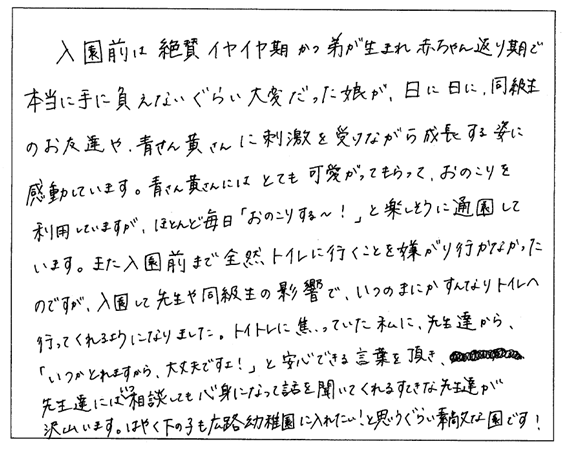 入園前は絶賛イヤイヤ期かつ弟が生まれ赤ちゃん返り期で
本当に手に負えないぐらい大変だった娘が、日に日に、同級生
のお友達や、青さん黄さんに刺激を受けながら成長する姿に
感動しています。青さん黄さんにはとても可愛がってもらって、おのこりを
利用していますが、ほとんど毎日「おのこりする〜!」と楽しそうに通園して
います。また入園前まで全然トイレに行くことを嫌がり行かなかった
のですが、入園して先生や同級生の影響で、いつのまにかすんなりトイレへ
行ってくれるようになりました。トイトレに焦っていた私に、先生達から、
「いつかとれますから、大丈夫ですよ!」と安心できる言葉を頂き、
先生達には相談しても心身になって話を聞いてくれるすてきな先生達が
沢山います。はやく下の子も広路幼稚園に入れたい!と思うぐらい素敵な園です!